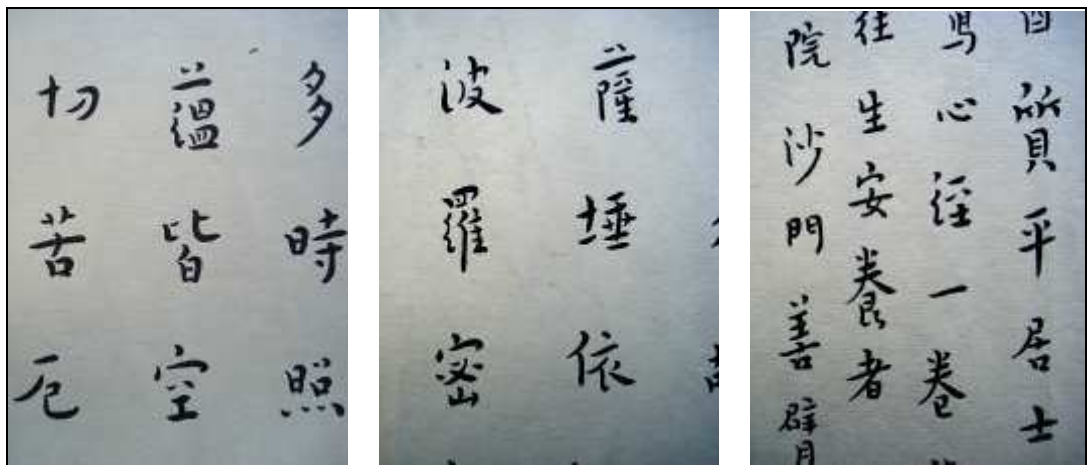 多時照
蘊皆空
切苦厄
薩埵依
波羅密
質平居士
心經一卷
往生安養者
院沙門善臂